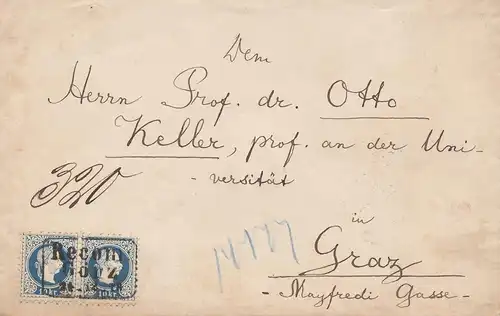 Dem
Herrn Prof. dr. Otto
Keller, prof. an der Uni-
-versität
in
Graz
- Mayfredi Gasse -
320
Recom